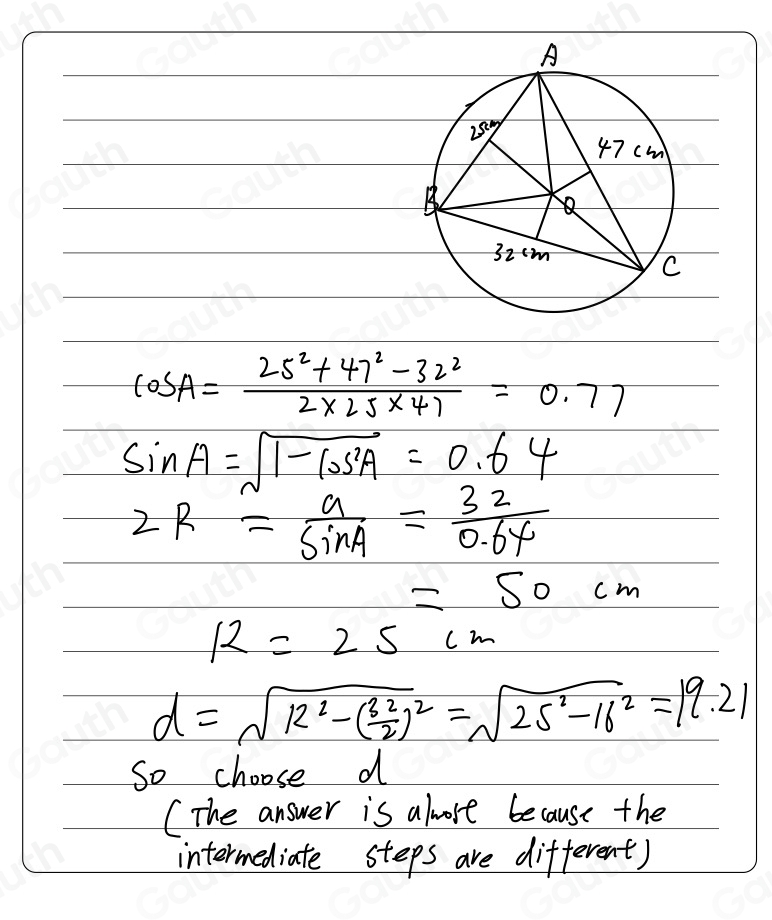 A
25cm
47 cm
B
O
32 cm
C
cosA = \frac{25²+47²-32²}{2×25×47} = 0.77
SinA = √(1-cos²A) = 0.64
2R = \frac{a}{SinA} = \frac{32}{0.64}
= 50 cm
R = 25 cm
d = √(R²-(\frac{32}{2})²) = √(25²-16²) = 19.21
So choose d
(The answer is almost because the
intermediate steps are different)